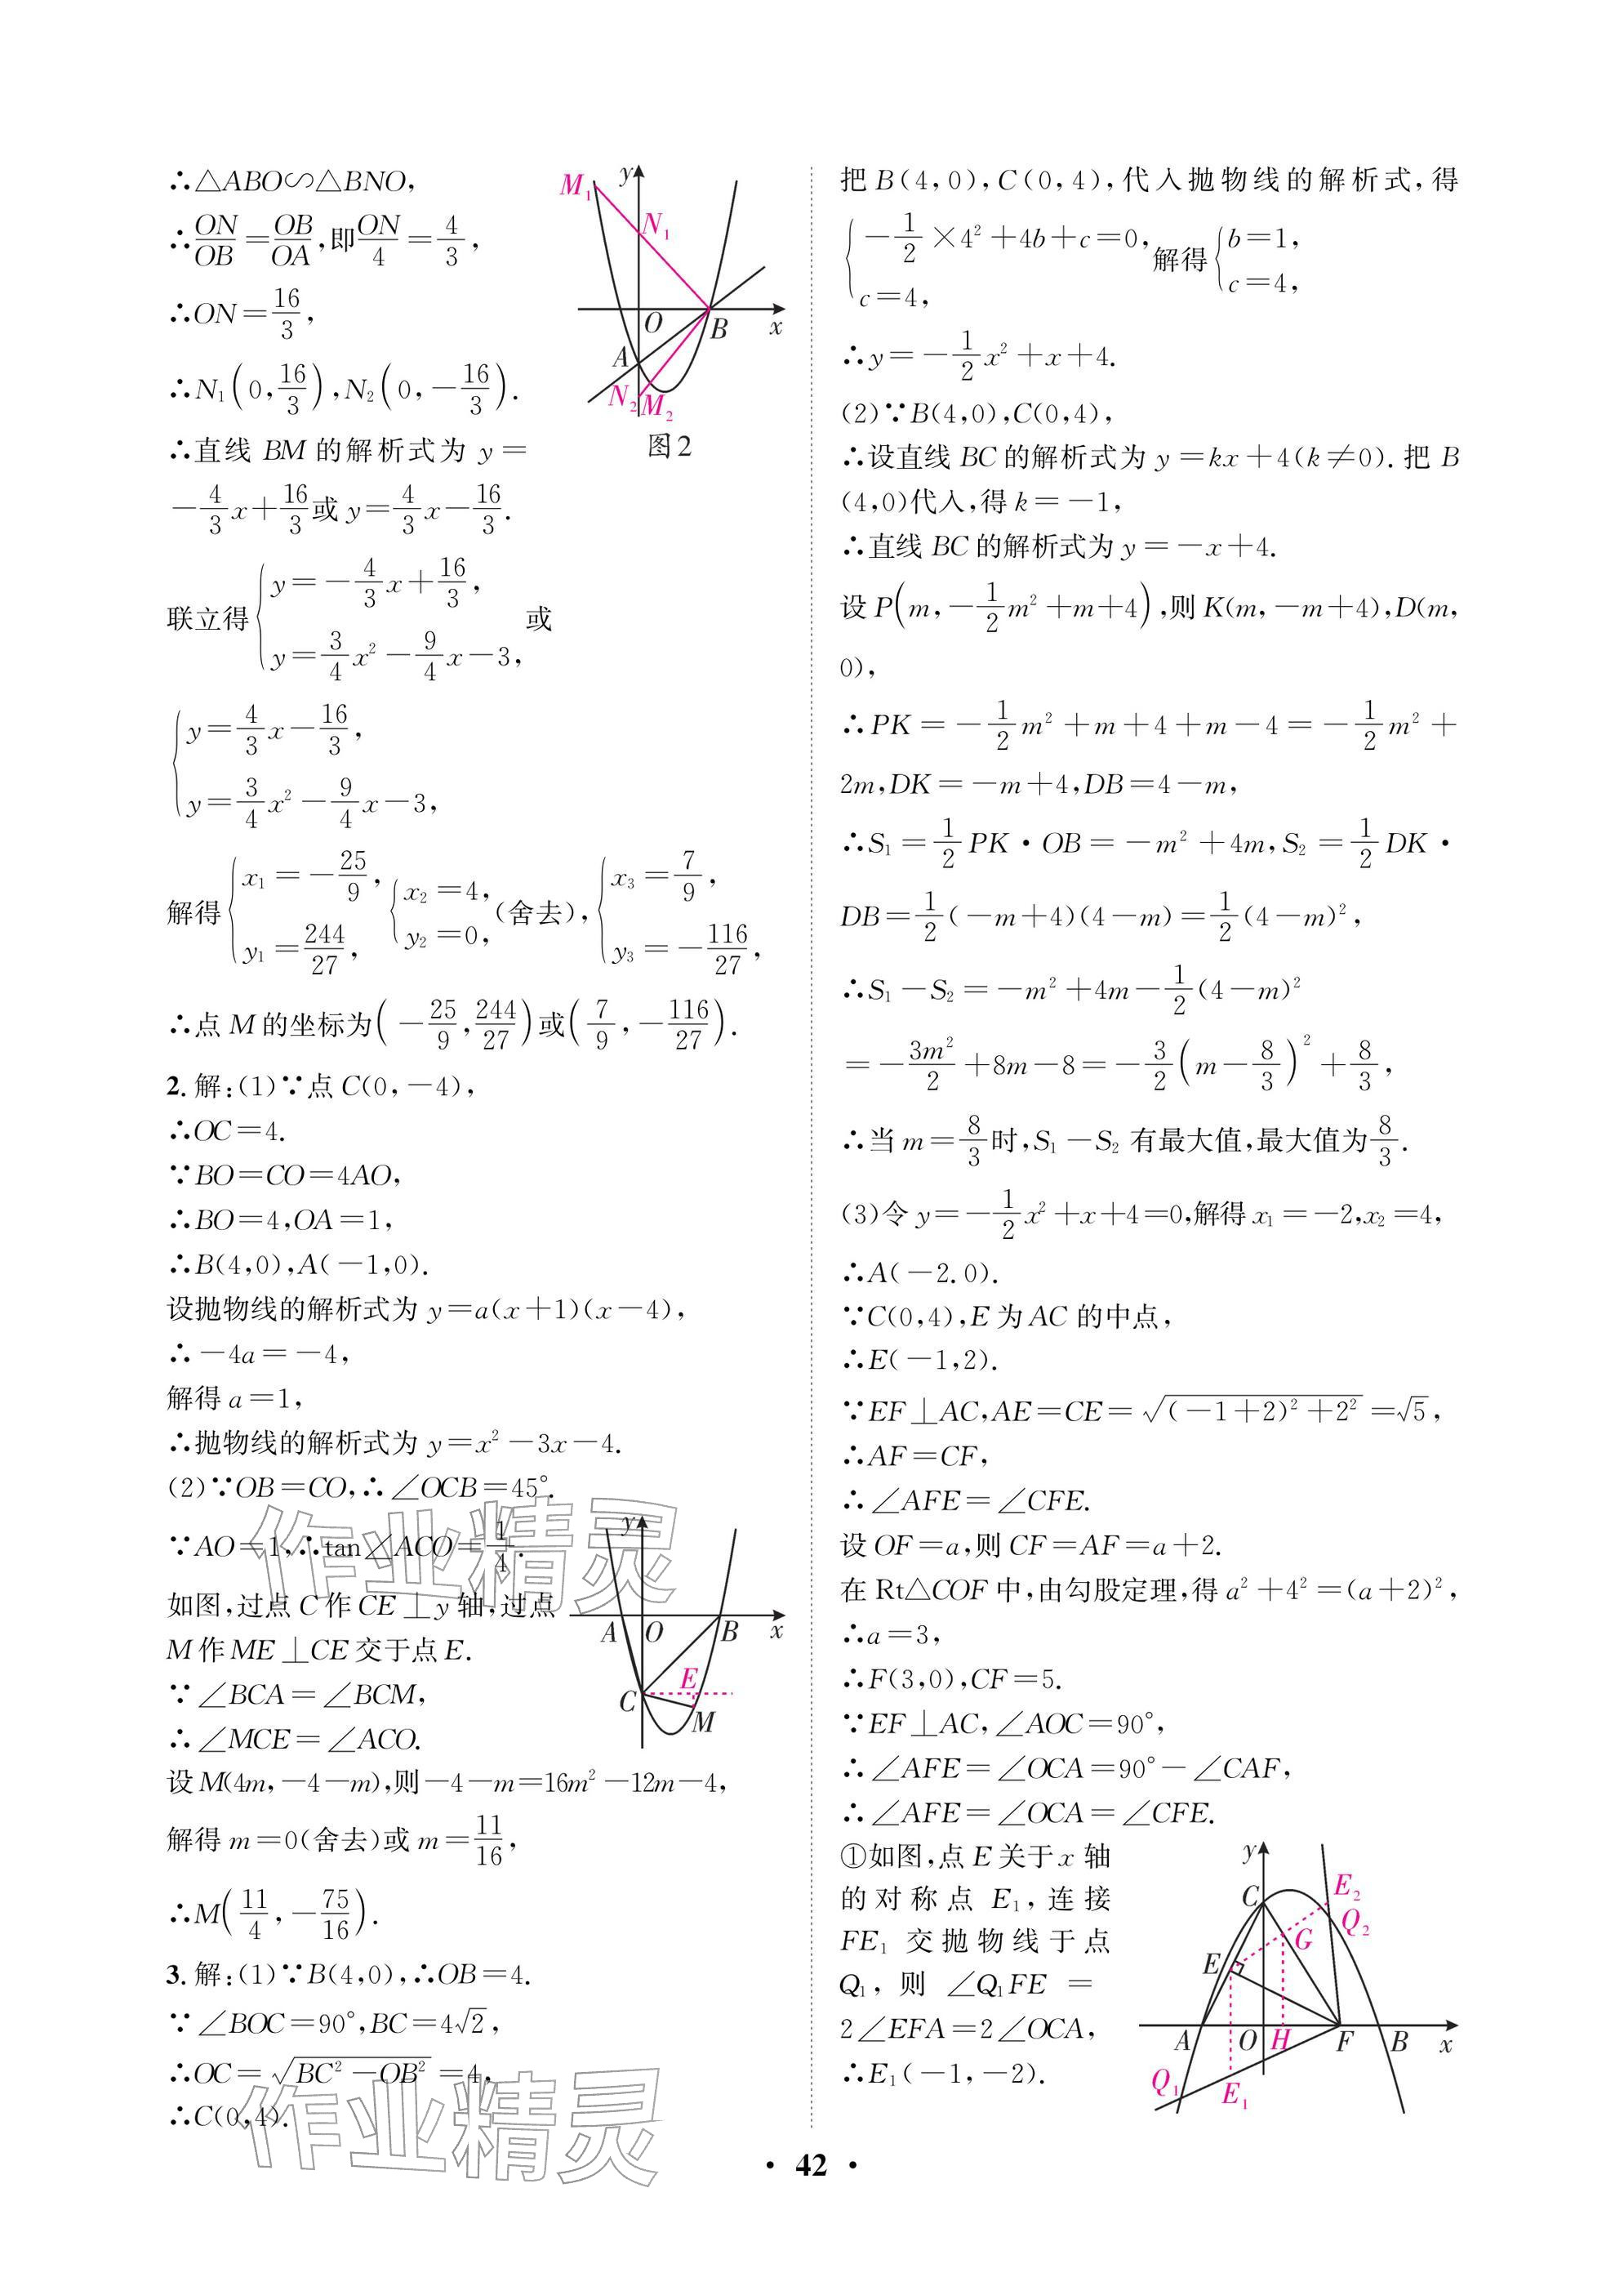 ∴△ABO∽△BNO,
∴ON/OB=OB/OA,即ON/4=4/3,
∴ON=16/3,
∴N₁(0,16/3),N₂(0,-16/3).
∴直线 BM 的解析式为 y=
-4/3x+16/3或y=4/3x-16/3.
联立得{y=-4/3x+16/3, y=3/4x²-9/4x-3,或
{y=4/3x-16/3, y=3/4x²-9/4x-3,
解得{x₁=-25/9, y₁=244/27, {x₂=4, y₂=0,(舍去),{x₃=7/9, y₃=-116/27,
∴点 M 的坐标为(-25/9,244/27)或(7/9,-116/27).
y
M₁
N₁
O
B
x
A
N₂
M₂
图2
2.解:(1)∵点 C(0,-4),
∴OC=4.
∵BO=CO=4AO,
∴BO=4,OA=1,
∴B(4,0),A(-1,0).
设抛物线的解析式为 y=a(x+1)(x-4),
∴-4a=-4,
解得 a=1,
∴抛物线的解析式为 y=x²-3x-4.
(2)∵OB=CO,∴∠OCB=45°.
∵AO=1,∴tan∠ACO=1/4.
如图,过点 C 作 CE⊥y 轴,过点
M 作 ME⊥CE 交于点 E.
∵∠BCA=∠BCM,
∴∠MCE=∠ACO.
设 M(4m,-4-m),则-4-m=16m²-12m-4,
解得 m=0(舍去)或 m=11/16,
∴M(11/4,-75/16).
y
A
O
B
x
C
E
M
3.解:(1)∵B(4,0),∴OB=4.
∵∠BOC=90°,BC=4√2,
∴OC=√(BC²-OB²)=4,
∴C(0,4).
把 B(4,0),C(0,4),代入抛物线的解析式,得
{-1/2×4²+4b+c=0, c=4,解得{b=1, c=4,
∴y=-1/2x²+x+4.
(2)∵B(4,0),C(0,4),
∴设直线 BC 的解析式为 y=kx+4(k≠0).把 B
(4,0)代入,得 k=-1,
∴直线 BC 的解析式为 y=-x+4.
设 P(m,-1/2m²+m+4),则 K(m,-m+4),D(m,
0),
∴PK=-1/2m²+m+4+m-4=-1/2m²+
2m,DK=-m+4,DB=4-m,
∴S₁=1/2PK·OB=-m²+4m,S₂=1/2DK·
DB=1/2(-m+4)(4-m)=1/2(4-m)²,
∴S₁-S₂=-m²+4m-1/2(4-m)²
=-3m²/2+8m-8=-3/2(m-8/3)²+8/3,
∴当 m=8/3时,S₁-S₂ 有最大值,最大值为8/3.
(3)令 y=-1/2x²+x+4=0,解得 x₁=-2,x₂=4,
∴A(-2.0).
∵C(0,4),E 为 AC 的中点,
∴E(-1,2).
∵EF⊥AC,AE=CE=√((-1+2)²+2²)=√5,
∴AF=CF,
∴∠AFE=∠CFE.
设 OF=a,则 CF=AF=a+2.
在 Rt△COF 中,由勾股定理,得 a²+4²=(a+2)²,
∴a=3,
∴F(3,0),CF=5.
∵EF⊥AC,∠AOC=90°,
∴∠AFE=∠OCA=90°-∠CAF,
∴∠AFE=∠OCA=∠CFE.
①如图,点 E 关于 x 轴
的对称点 E₁,连接
FE₁ 交抛物线于点
Q₁,则∠Q₁FE=
2∠EFA=2∠OCA,
∴E₁(-1,-2).
y
C
E₂
Q₂
G
E
A
O
H
F
B
x
Q₁
E₁
作业精灵
作业精灵
· 42 ·